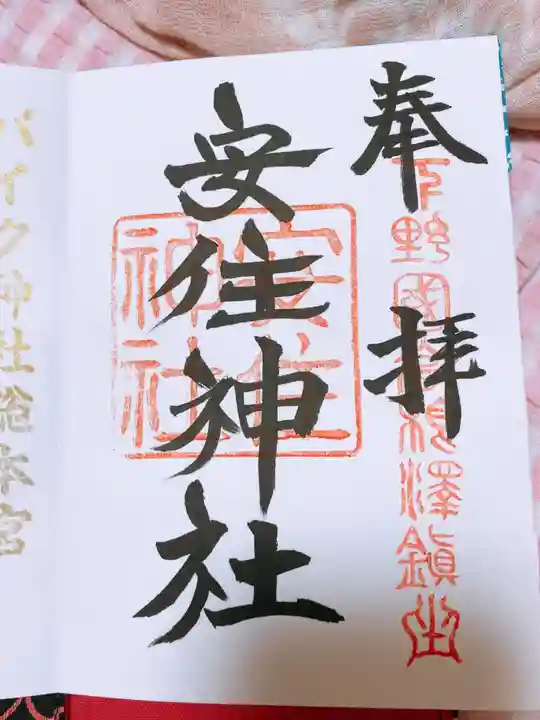 奉拝
下野國高根澤鎮坐
安住神社
安住神社
バイク神社総本宮